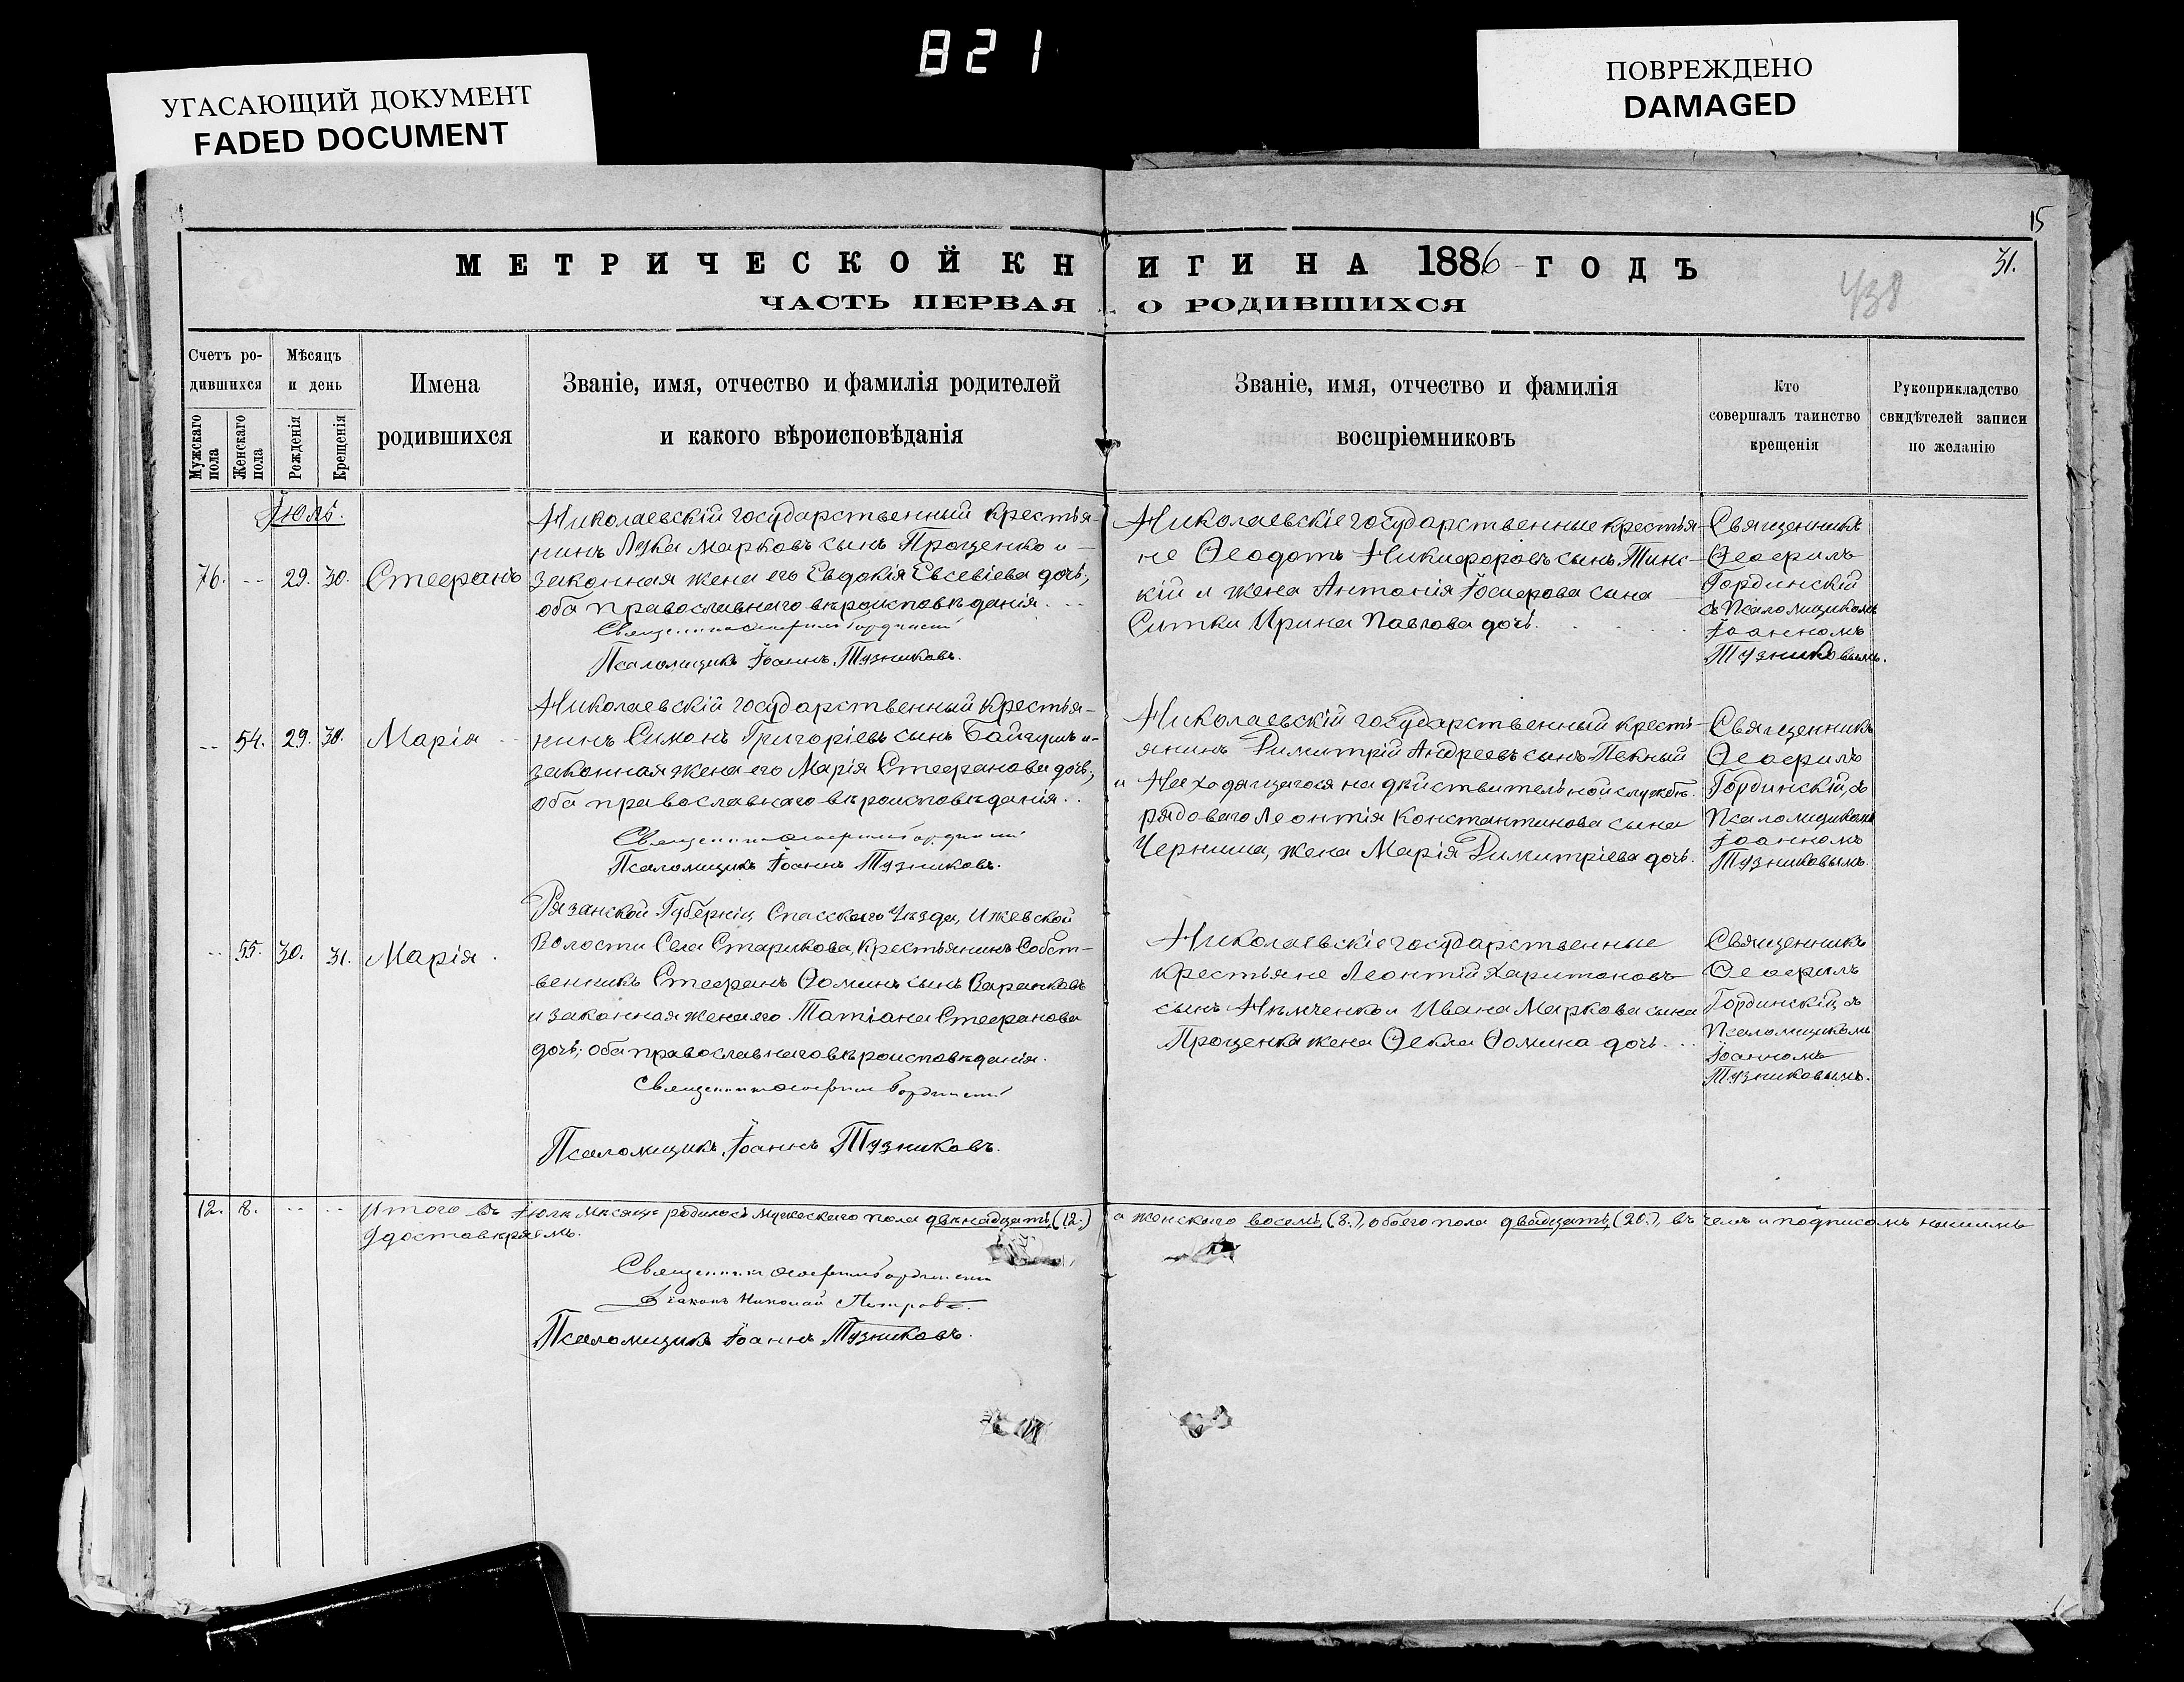 821
УГАСАЮЩИЙ ДОКУМЕНТ
FADED DOCUMENT
ПОВРЕЖДЕНО
DAMAGED
15
МЕТРИЧЕСКОЙ КНИГИ НА 1886 ГОДЪ
31.
ЧАСТЬ ПЕРВАЯ О РОДИВШИХСЯ
438
Счетъ ро-
дившихся
Мужскаго
пола
Женскаго
пола
Мѣсяцъ
и день
Рожденія
Крещенія
Имена
родившихся
Званіе, имя, отчество и фамилія родителей
и какого вѣроисповѣданія
Званіе, имя, отчество и фамилія
воспріемниковъ
Кто
совершалъ таинство
крещенія
Рукоприкладство
свидѣтелей записи
по желанію
Іюль.
76. -- 29. 30. Стефанъ
Николаевскій государственный крестья-
нинъ Лука Марковъ сынъ Проценко и
законная жена его Евдокія Евсевіева дочь,
оба православнаго вѣроисповѣданія.
Священникъ Ѳеофилъ Гординскій
Псаломщикъ Іоаннъ Тузниковъ.
Николаевскіе государственные крестья-
не Ѳеодотъ Никифоровъ сынъ Тинс-
кій и жена Антонія Іосифова сына
Ситки Ирина Павлова дочь.
Священникъ
Ѳеофилъ
Гординскій
съ Псаломщикомъ
Іоанномъ
Тузниковымъ.
-- 54. 29. 30. Марія
Николаевскій государственный крестья-
нинъ Симонъ Григоріевъ сынъ и
законная жена его Марія Стефанова дочь,
оба православнаго вѣроисповѣданія.
Священникъ Ѳеофилъ Гординскій
Псаломщикъ Іоаннъ Тузниковъ.
Николаевскій государственный кресть-
янинъ Димитрій Андреевъ сынъ Пекный
и Находящагося на дѣйствительной службѣ
рядоваго Леонтія Константинова сына
Черниша, жена Марія Димитріева дочь.
Священникъ
Ѳеофилъ
Гординскій, съ
Псаломщикомъ
Іоанномъ
Тузниковымъ.
-- 55. 30. 31. Марія.
Рязанской Губерніи, Спасскаго Уѣзда, Ижевской
Волости Села Старикова, Крестьянинъ Собст-
венникъ Стефанъ Ѳоминъ сынъ Варанковъ
и законная жена его Татіана Стефанова
дочь; оба православнаго вѣроисповѣданія.
Священникъ Ѳеофилъ Гординскій
Псаломщикъ Іоаннъ Тузниковъ.
Николаевскіе государственные
крестьяне Леонтій Харитоновъ
сынъ Нѣмченко и Ивана Маркова сына
Проценка жена Ѳекла Ѳомина дочь.
Священникъ
Ѳеофилъ
Гординскій, съ
Псаломщикомъ
Іоанномъ
Тузниковымъ.
12. 8. -- -- Итого въ Іюлѣ мѣсяцѣ родилось мужескаго пола двѣнадцать (12.) а женскаго восемь (8.), обоего пола двадцать, (20.), въ чемъ и подписомъ нашимъ
удостовѣряемъ.
Священникъ Ѳеофилъ Гординскій
Діаконъ Николай Петровъ.
Псаломщикъ Іоаннъ Тузниковъ.